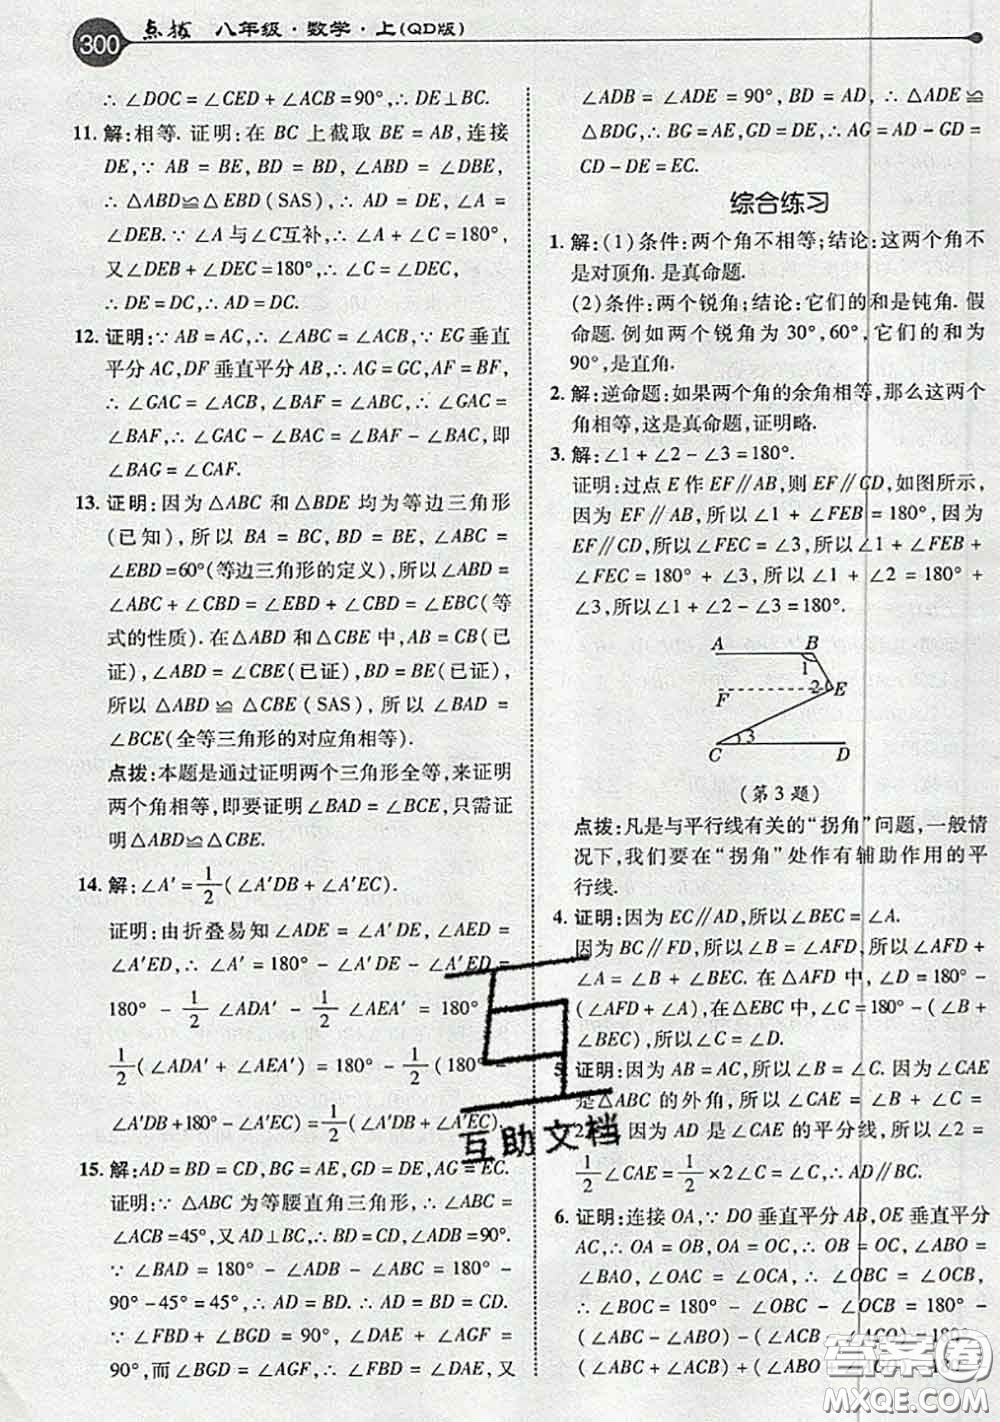 300 点拨 八年级·数学·上(QD版)
∴∠DOC=∠CED+∠ACB=90°,∴DE⊥BC.
11. 解:相等. 证明:在 BC 上截取 BE=AB,连接
DE,∵ AB=BE,BD=BD,∠ABD=∠DBE,
∴△ABD≌△EBD(SAS),∴AD=DE,∠A=
∠DEB.∵∠A与∠C互补,∴∠A+∠C=180°,
又∠DEB+∠DEC=180°,∴∠C=∠DEC,
∴DE=DC,∴AD=DC.
12. 证明:∵AB=AC,∴∠ABC=∠ACB,∵EG垂直
平分AC,DF垂直平分AB,∴AG=GC,AF=BF,
∴∠GAC=∠ACB,∠BAF=∠ABC,∴∠GAC=
∠BAF,∴∠GAC-∠BAC=∠BAF-∠BAC,即
∠BAG=∠CAF.
13. 证明:因为△ABC 和△BDE 均为等边三角形
(已知),所以 BA=BC,BD=BE,∠ABC=
∠EBD=60°(等边三角形的定义),所以∠ABD=
∠ABC+∠CBD=∠EBD+∠CBD=∠EBC(等
式的性质).在△ABD 和△CBE 中,AB=CB(已
证),∠ABD=∠CBE(已证),BD=BE(已证),
所以△ABD≌△CBE(SAS),所以∠BAD=
∠BCE(全等三角形的对应角相等).
点拨:本题是通过证明两个三角形全等,来证明
两个角相等,即要证明∠BAD=∠BCE,只需证
明△ABD≌△CBE.
14. 解:∠A′=1/2(∠A′DB+∠A′EC).
证明:由折叠易知∠ADE=∠A′DE,∠AED=
∠A′ED,∴∠A′=180°-∠A′DE-∠A′ED=
180°-1/2∠ADA′-1/2∠AEA′=180°-
1/2(∠ADA′+∠AEA′)=180°-1/2(180°-
∠A′DB+180°-∠A′EC)=1/2(∠A′DB+∠A′EC).
15. 解:AD=BD=CD,BG=AE,GD=DE,AG=EC.
证明:∵△ABC 为等腰直角三角形,∴∠ABC=
∠ACB=45°,又AD⊥BC,∴BD=CD,∠ADB=90°.
∵∠BAD=180°-∠ADB-∠ABC=180°-
90°-45°=45°,∴AD=BD.∴AD=BD=CD.
∵∠FBD+∠BGD=90°,∠DAE+∠AGF=
90°,而∠BGD=∠AGF,∴∠FBD=∠DAE,又
∠ADB=∠ADE=90°,BD=AD,∴△ADE≌
△BDG,∴BG=AE,GD=DE,∴AG=AD-GD=
CD-DE=EC.
综合练习
1. 解:(1)条件:两个角不相等;结论:这两个角不
是对顶角.是真命题.
(2)条件:两个锐角;结论:它们的和是钝角.假
命题.例如两个锐角为30°,60°,它们的和为
90°,是直角.
2. 解:逆命题:如果两个角的余角相等,那么这两个
角相等,这是真命题,证明略.
3. 解:∠1+∠2-∠3=180°.
证明:过点E作EF∥AB,则EF∥CD,如图所示,
因为EF∥AB,所以∠1+∠FEB=180°,因为
EF∥CD,所以∠FEC=∠3,所以∠1+∠FEB+
∠FEC=180°+∠3,所以∠1+∠2=180°+
∠3,所以∠1+∠2-∠3=180°.
A B
1
F 2 E
3
C D
(第3题)
点拨:凡是与平行线有关的“拐角”问题,一般情
况下,我们要在“拐角”处作有辅助作用的平
行线.
4. 证明:因为EC∥AD,所以∠BEC=∠A.
因为BC∥FD,所以∠B=∠AFD,所以∠AFD+
∠A=∠B+∠BEC.在△AFD中,∠D=180°-
(∠AFD+∠A),在△EBC中,∠C=180°-(∠B+
∠BEC),所以∠C=∠D.
5. 证明:因为AB=AC,所以∠B=∠C.因为∠CAE
是△ABC的外角,所以∠CAE=∠B+∠C=
因为AD是∠CAE的平分线,所以∠2=
1/2∠CAE=1/2×2∠C=∠C,所以AD∥BC.
6. 证明:连接OA,∵DO垂直平分AB,OE垂直平分
AC,∴OA=OB,OA=OC,∴OB=OC,∠OAB=
∠ABO,∠OAC=∠OCA,∴∠OBC=∠OCB,
∴∠BOC=180°-∠OBC-∠OCB=180°-
(∠ABC-∠ABO)-(∠ACB-∠ACO)=180°-
(∠ABC+∠ACB)+(∠ABO+
互助文档
答案圈
MXQE.COM